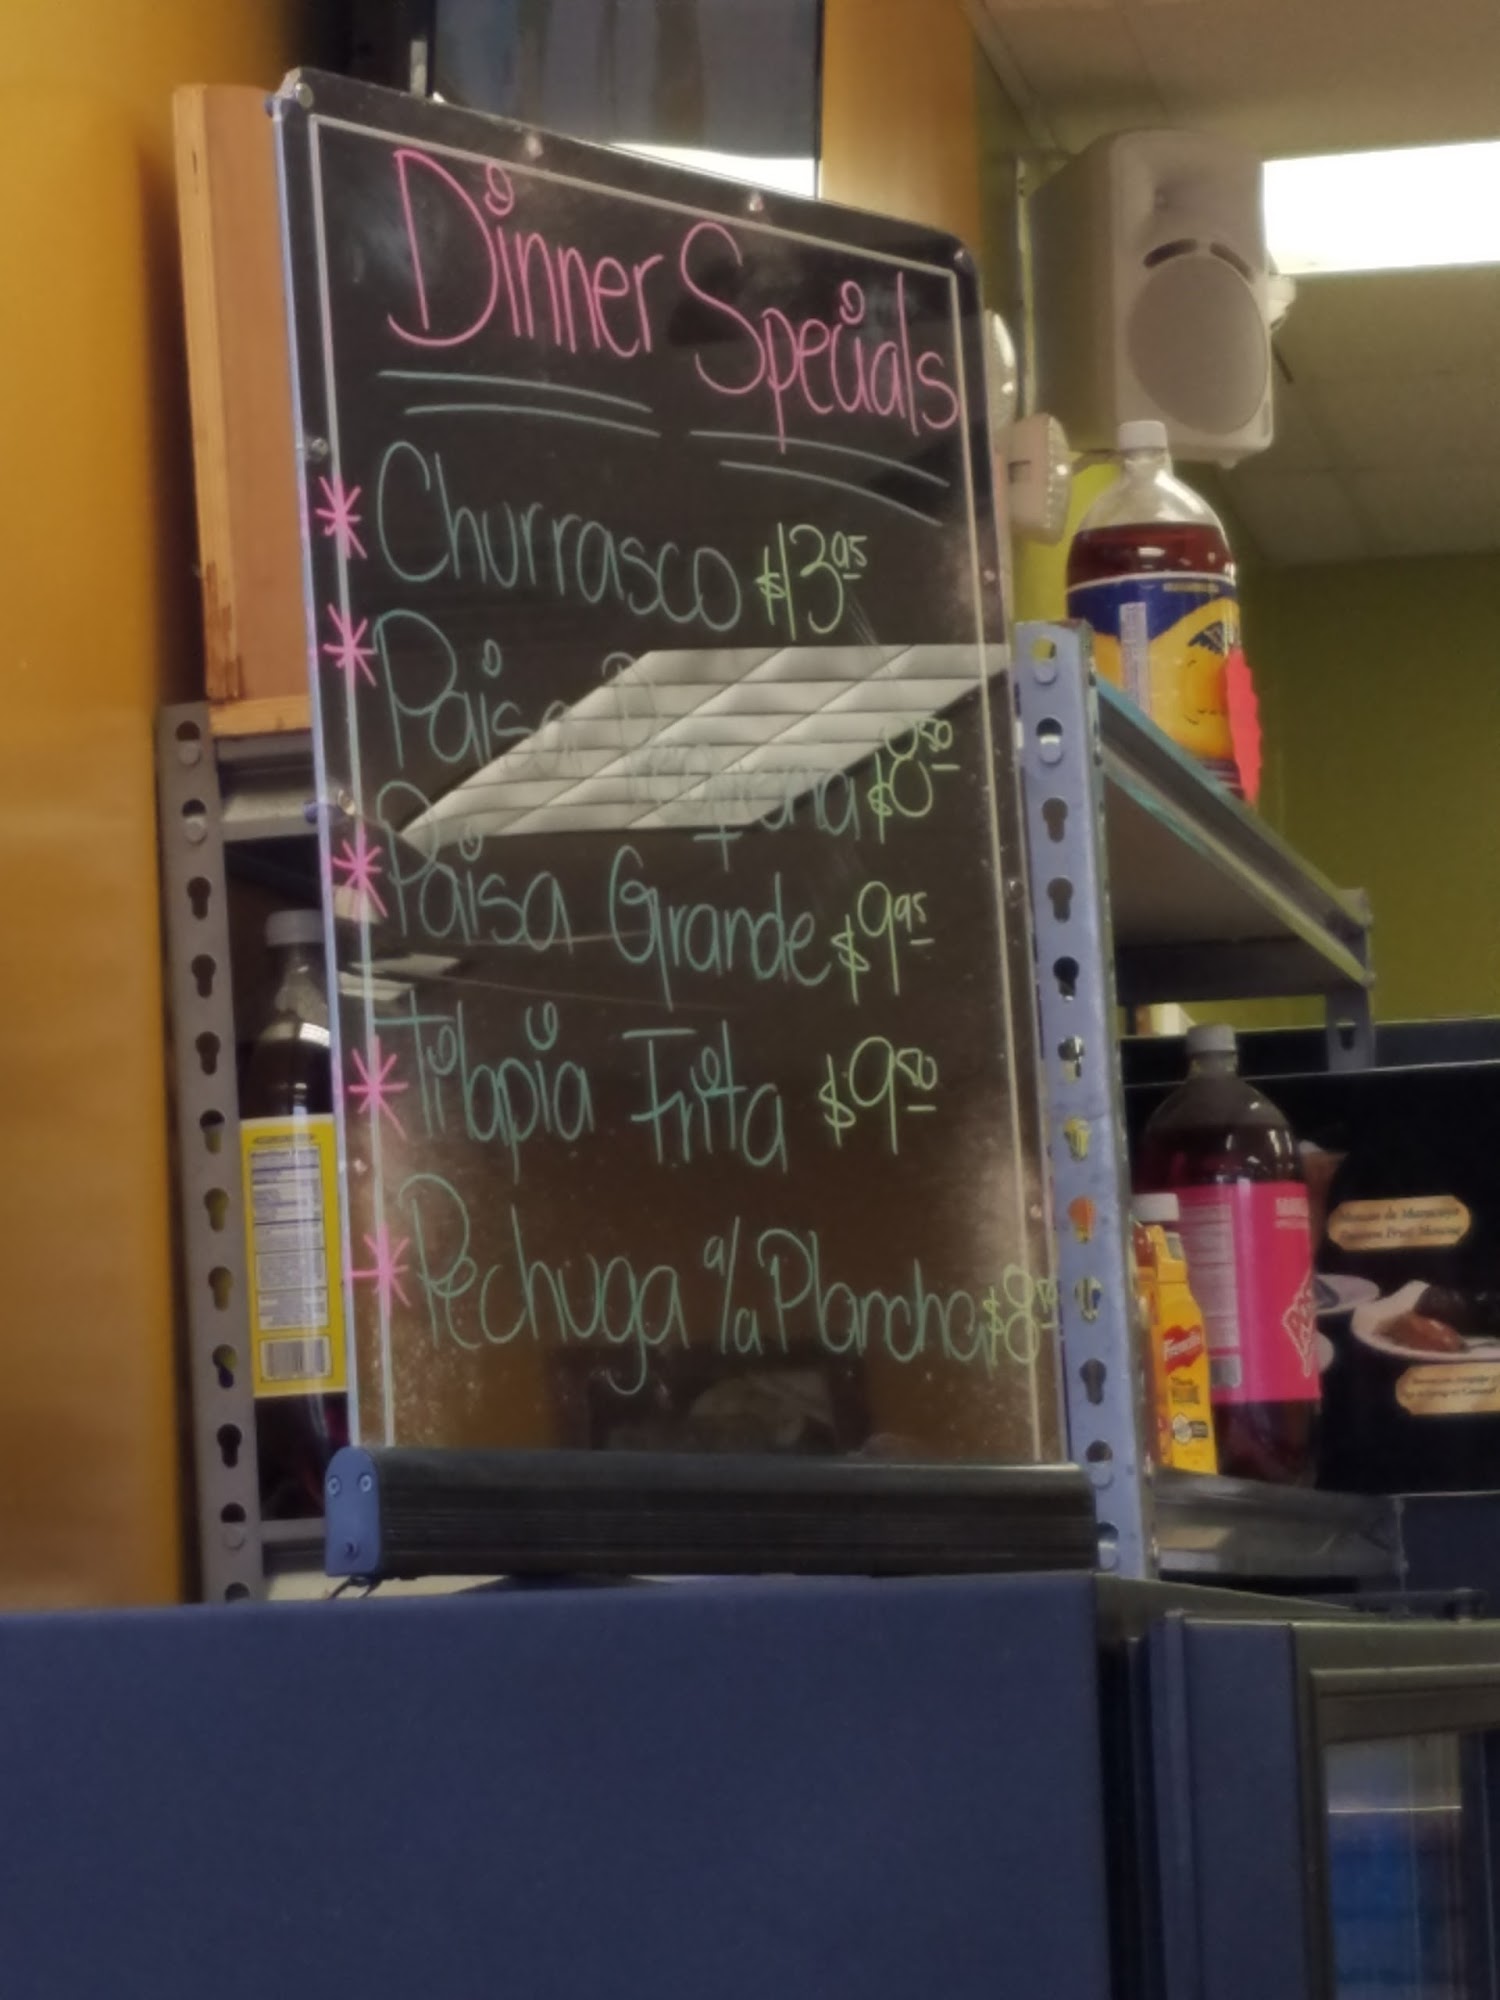 Dinner Specials
* Churrasco $13.95
* Paisa Pequeña $8.50
* Paisa Grande $9.95
* Tilapia Frita $9.50
* Pechuga a/la Plancha $8.50